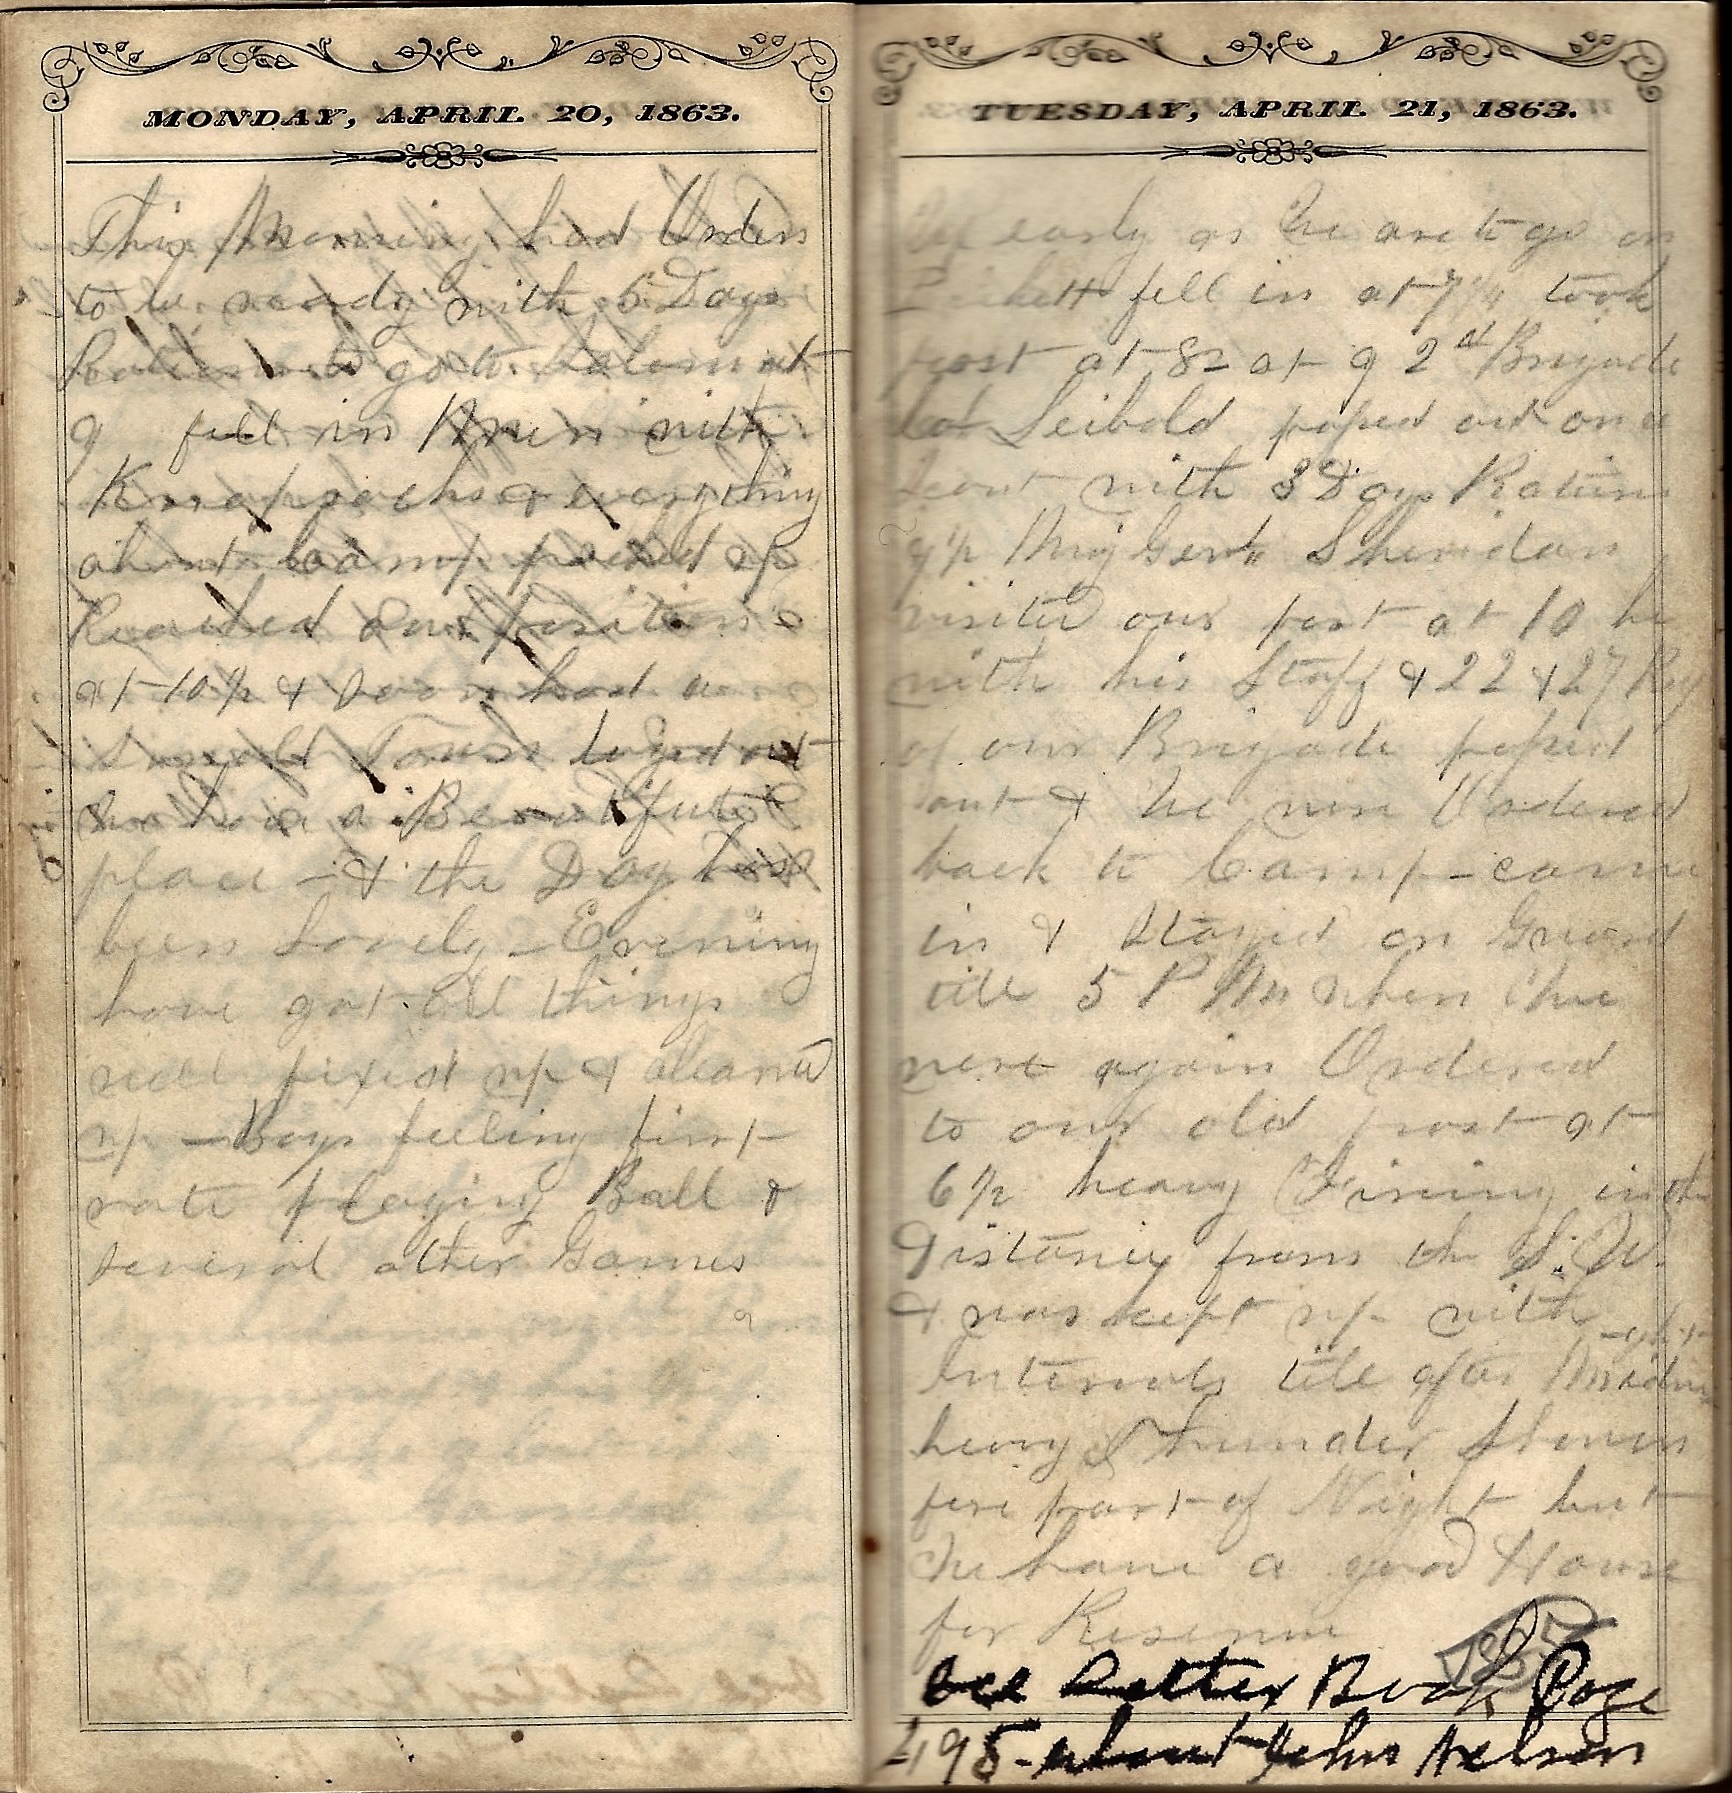 MONDAY, APRIL 20, 1863.
This Morning had Orders
to be ready with 5 Days
Rations to go to Salem at
9 fell in Arms with
Knapsacks & everything
about Camp packed up
Reached our position
at 10 1/2 & soon had a
small Town loged out
we have a Beautiful
place - & the Day has
been Lovely - Evening
have got all things
well fixed up & cleaned
up - Boys feeling first
rate playing Ball &
several other Games
TUESDAY, APRIL 21, 1863.
Up early as We are to go on
Pickett fell in at 7 1/4 took
post at 8 at 9 2nd Brigade
Col Leibold passed out on a
Scout with 3 Days Rations
9 1/2 Maj Genl Sheridan
visited our post at 10 he
with his Staff & 22 & 27 Rg
of our Brigade passed
out & We were Ordered
back to Camp - came
in & Stayed on Guard
till 5 P M when We
were again Ordered
to our old post at
6 1/2 heavy Firing in the
Distance from the S. W.
& was kept up with
Intervals till after Midni
heavy Thunder Shower
fore part of Night but
We have a good House
for Reserve
See Letter Book Page
195 - about John Nelson